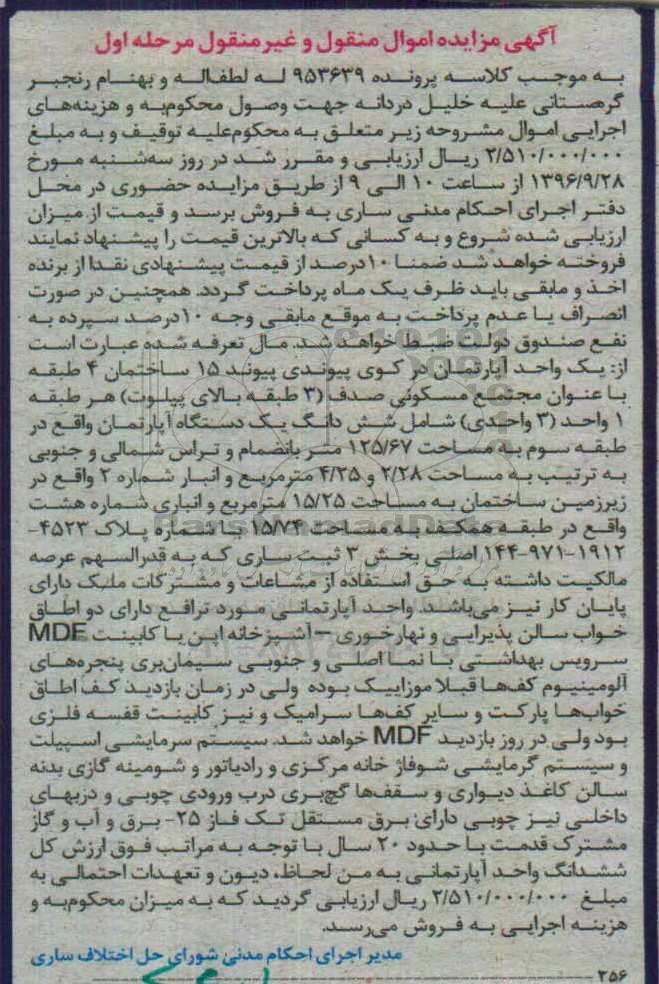 آگهی مزایده اموال منقول و غیر منقول مرحله اول
به موجب کلاسه پرونده ۹۵۳۶۳۹ له لطفاله و بهنام رنجبر
گرهستانی علیه خلیل دردانه جهت وصول محکوم‌به و هزینه‌های
اجرایی اموال مشروحه زیر متعلق به محکوم‌علیه توقیف و به مبلغ
۲/۵۱۰/۰۰۰/۰۰۰ ریال ارزیابی و مقرر شد در روز سه‌شنبه مورخ
۱۳۹۶/۹/۲۸ از ساعت ۱۰ الی ۹ از طریق مزایده حضوری در محل
دفتر اجرای احکام مدنی ساری به فروش برسد و قیمت از میزان
ارزیابی شده شروع و به کسانی که بالاترین قیمت را پیشنهاد نمایند
فروخته خواهد شد ضمنا ۱۰درصد از قیمت پیشنهادی نقدا از برنده
اخذ و مابقی باید ظرف یک ماه پرداخت گردد. همچنین در صورت
انصراف یا عدم پرداخت به موقع مابقی وجه ۱۰درصد سپرده به
نفع صندوق دولت ضبط خواهد شد. مال تعرفه شده عبارت است
از: یک واحد آپارتمان در کوی پیوندی پیوند ۱۵ ساختمان ۴ طبقه
با عنوان مجتمع مسکونی صدفا (۳ طبقه بالای پیلوت) هر طبقه
۱ واحد (۳ واحدی) شامل شش دانگ یک دستگاه آپارتمان واقع در
طبقه سوم به مساحت ۱۲۵/۶۷ متر بانضمام و تراس شمالی و جنوبی
به ترتیب به مساحت ۲/۲۸ و ۴/۲۵ مترمربع و انبار شماره ۲ واقع در
زیرزمین ساختمان به مساحت ۱۵/۲۵ مترمربع و انباری شماره هشت
واقع در طبقه همکف به مساحت ۱۵/۷۴ با شماره پلاک ۴۵۲۳-
۱۹۱۲-۹۷۱-۱۴۴ اصلی بخش ۳ ثبت ساری که به قدرالسهم عرصه
مالکیت داشته به حق استفاده از مشاعات و مشترکات ملک دارای
پایان کار نیز می‌باشد. واحد آپارتمانی مورد ترافع دارای دو اطاق
خواب سالن پذیرایی و نهارخوری – آشپزخانه اپن با کابینت MDF
سرویس بهداشتی با نما اصلی و جنوبی سیمان‌بری پنجره‌های
آلومینیوم کف‌ها قبلا موزاییک بوده ولی در زمان بازدید کف اطاق
خواب‌ها پارکت و سایر کف‌ها سرامیک و نیز کابینت قفسه فلزی
بود ولی در روز بازدید MDF خواهد شد. سیستم سرمایشی اسپیلت
و سیستم گرمایشی شوفاژ خانه مرکزی و رادیاتور و شومینه گازی بدنه
سالن کاغذ دیواری و سقف‌ها گچ‌بری درب ورودی چوبی و دربهای
داخلی نیز چوبی دارای برق مستقل تک فاز ۲۵- برق و آب و گاز
مشترک قدمت با حدود ۲۰ سال با توجه به مراتب فوق ارزش کل
ششدانگ واحد آپارتمانی به من لحاظ، دیون و تعهدات احتمالی به
مبلغ ۲/۵۱۰/۰۰۰/۰۰۰ ریال ارزیابی گردید که به میزان محکوم‌به و
هزینه اجرایی به فروش می‌رسد.
مدیر اجرای احکام مدنی شورای حل اختلاف ساری
۲۵۶